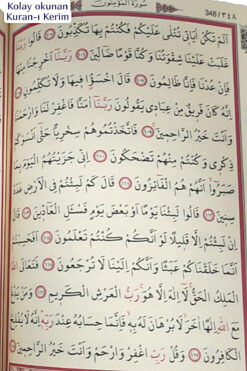 Kolay okunan
Kuran-ı Kerim
348 / ٣٤٨
سُورَةُ الْمُؤْمِنُونَ
اَلَمْ تَكُنْ اٰيَات۪ي تُتْلٰى عَلَيْكُمْ فَكُنْتُمْ بِهَا تُكَذِّبُونَ ﴿١٠٥﴾ قَالُوا رَبَّنَا
غَلَبَتْ عَلَيْنَا شِقْوَتُنَا وَكُنَّا قَوْمًا ضَٓالّ۪ينَ ﴿١٠٦﴾ رَبَّنَٓا اَخْرِجْنَا مِنْهَا
فَاِنْ عُدْنَا فَاِنَّا ظَالِمُونَ ﴿١٠٧﴾ قَالَ اخْسَؤُ۫ا ف۪يهَا وَلَا تُكَلِّمُونِ ﴿١٠٨﴾
اِنَّهُ كَانَ فَر۪يقٌ مِنْ عِبَاد۪ي يَقُولُونَ رَبَّنَٓا اٰمَنَّا فَاغْفِرْ لَنَا وَارْحَمْنَا
وَاَنْتَ خَيْرُ الرَّاحِم۪ينَ ﴿١٠٩﴾ فَاتَّخَذْتُمُوهُمْ سِخْرِيًّا حَتّٰٓى اَنْسَوْكُمْ
ذِكْر۪ي وَكُنْتُمْ مِنْهُمْ تَضْحَكُونَ ﴿١١٠﴾ اِنّ۪ي جَزَيْتُهُمُ الْيَوْمَ بِمَا
صَبَرُٓوا اَنَّهُمْ هُمُ الْفَٓائِزُونَ ﴿١١١﴾ قَالَ كَمْ لَبِثْتُمْ فِي الْاَرْضِ عَدَدَ
سِن۪ينَ ﴿١١٢﴾ قَالُوا لَبِثْنَا يَوْمًا اَوْ بَعْضَ يَوْمٍ فَسْـَٔلِ الْعَٓادّ۪ينَ ﴿١١٣﴾ قَالَ
اِنْ لَبِثْتُمْ اِلَّا قَل۪يلًا لَوْ اَنَّكُمْ كُنْتُمْ تَعْلَمُونَ ﴿١١٤﴾ اَفَحَسِبْتُمْ
اَنَّمَا خَلَقْنَاكُمْ عَبَثًا وَاَنَّكُمْ اِلَيْنَا لَا تُرْجَعُونَ ﴿١١٥﴾ فَتَعَالَى اللّٰهُ
الْمَلِكُ الْحَقُّ لَٓا اِلٰهَ اِلَّا هُوَ رَبُّ الْعَرْشِ الْكَر۪يمِ ﴿١١٦﴾ وَمَنْ يَدْعُ
مَعَ اللّٰهِ اِلٰهًا اٰخَرَ لَا بُرْهَانَ لَهُ بِه۪ فَاِنَّمَا حِسَابُهُ عِنْدَ رَبِّه۪ اِنَّهُ لَا يُفْلِحُ
الْكَافِرُونَ ﴿١١٧﴾ وَقُلْ رَبِّ اغْفِرْ وَارْحَمْ وَاَنْتَ خَيْرُ الرَّاحِم۪ينَ ﴿١١٨﴾